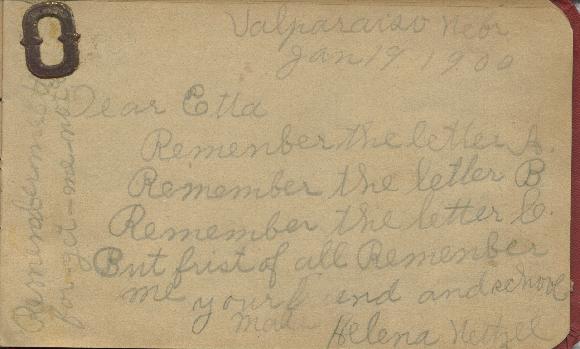 Valparaiso Nebr
Jan 19 1900
Dear Etta
Remenber the letter A.
Remember the letter B
Remember the letter C.
But frist of all Remenber
me your friend and school
mate Helena
Remember me
for-get-me-not